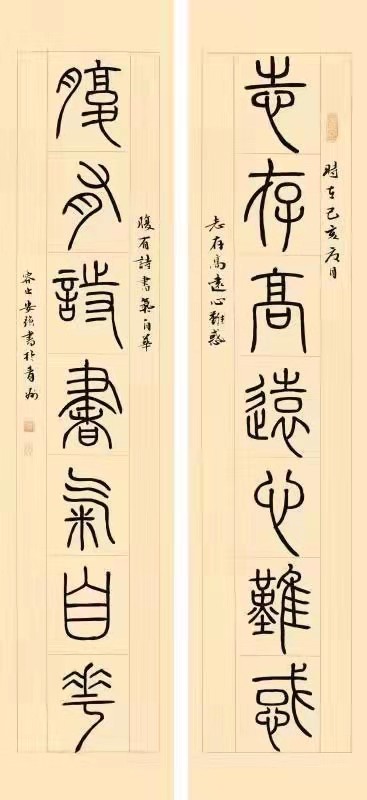 時在己亥月
志存高遠心難惑
志存高遠心難惑
腹有詩書氣自華
腹有詩書氣自華
安強書於青州